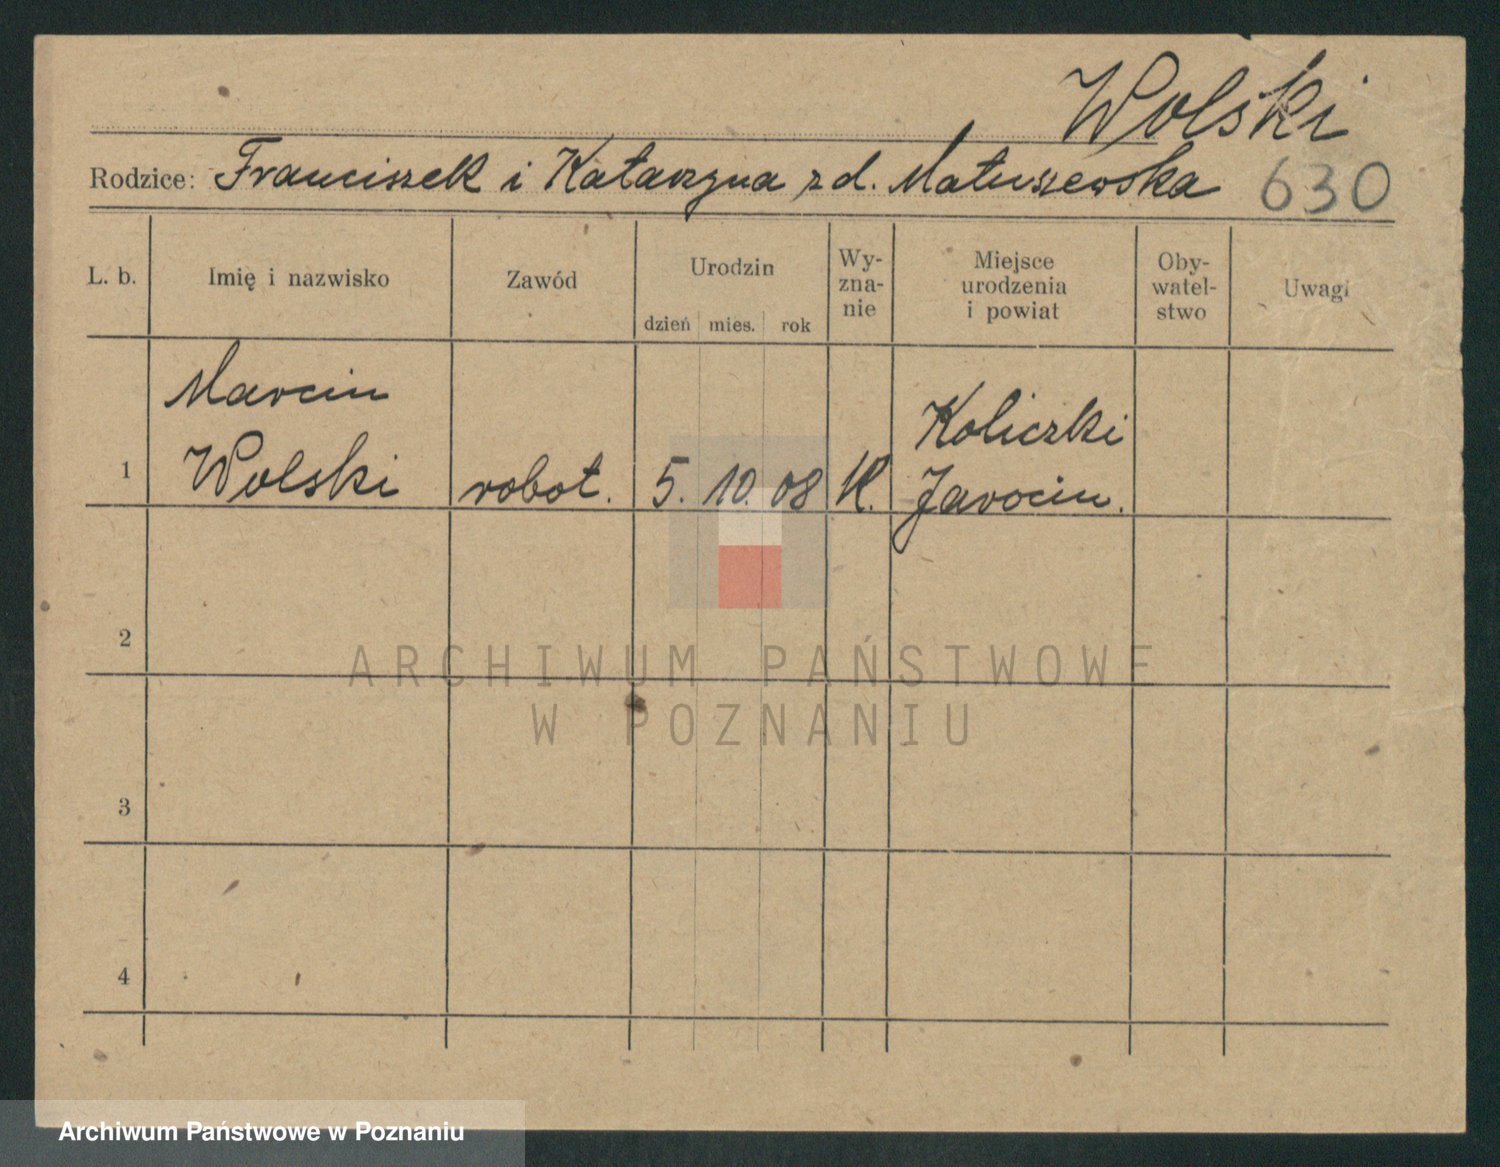 Wolski
Rodzice: Franciszek i Katarzyna z d. Matuszewska 630
L. b. Imię i nazwisko Zawód Urodzin dzień mies. rok Wy-zna-nie Miejsce urodzenia i powiat Oby-watel-stwo Uwagi
Marcin
1 Wolski robot. 5. 10. 08 K. Koliczki
Jarocin.
2
ARCHIWUM PAŃSTWOWE
W POZNANIU
3
4
Archiwum Państwowe w Poznaniu